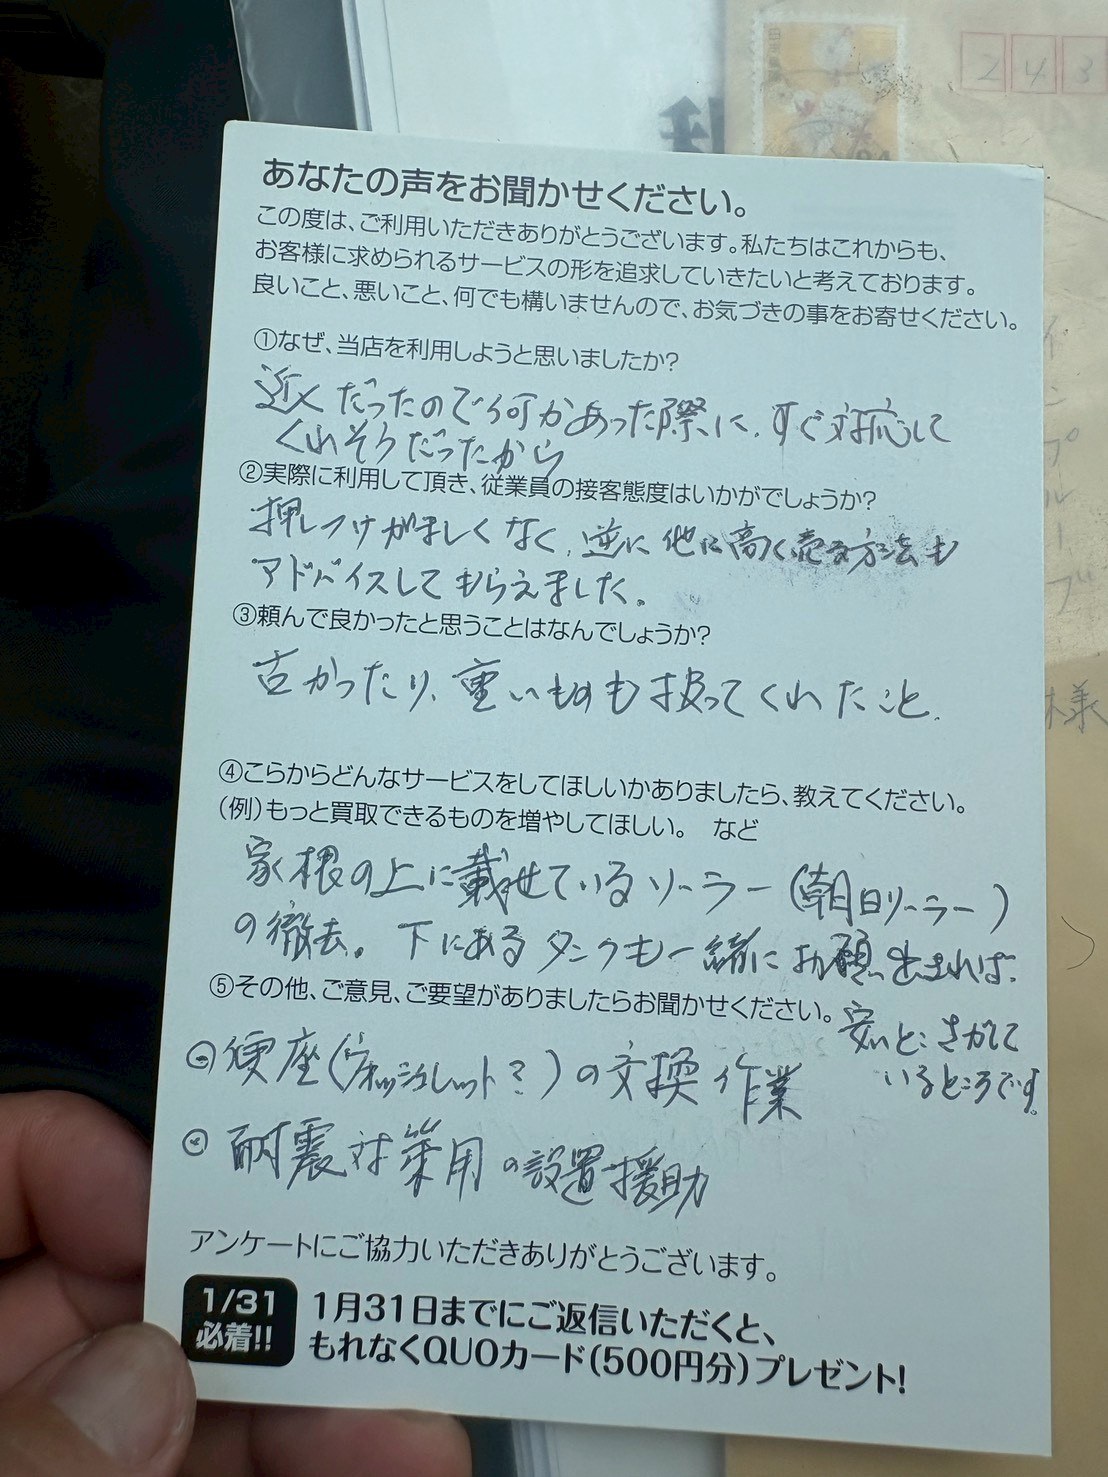 243
あなたの声をお聞かせください。
この度は、ご利用いただきありがとうございます。私たちはこれからも、
お客様に求められるサービスの形を追求していきたいと考えております。
良いこと、悪いこと、何でも構いませんので、お気づきの事をお寄せください。
①なぜ、当店を利用しようと思いましたか?
近くだったので何かあった際に、すぐ対応して
くれそうだったから
②実際に利用して頂き、従業員の接客態度はいかがでしょうか?
押しつけがましくなく、逆に他に高く売る方法も
アドバイスしてもらえました。
③頼んで良かったと思うことはなんでしょうか?
古かったり、重いものも扱ってくれたこと。
④こらからどんなサービスをしてほしいかありましたら、教えてください。
(例)もっと買取できるものを増やしてほしい。 など
家根の上に載せているソーラー(朝日ソーラー)
の徹去。下にあるタンクも一緒にお願い出来れば。
安いとこさがして
いるところです。
⑤その他、ご意見、ご要望がありましたらお聞かせください。
便座(ウォッシュレット?)の交換作業
耐震対策用の設置援助
アンケートにご協力いただきありがとうございます。
1/31
必着!!
1月31日までにご返信いただくと、
もれなくQUOカード(500円分)プレゼント!
様